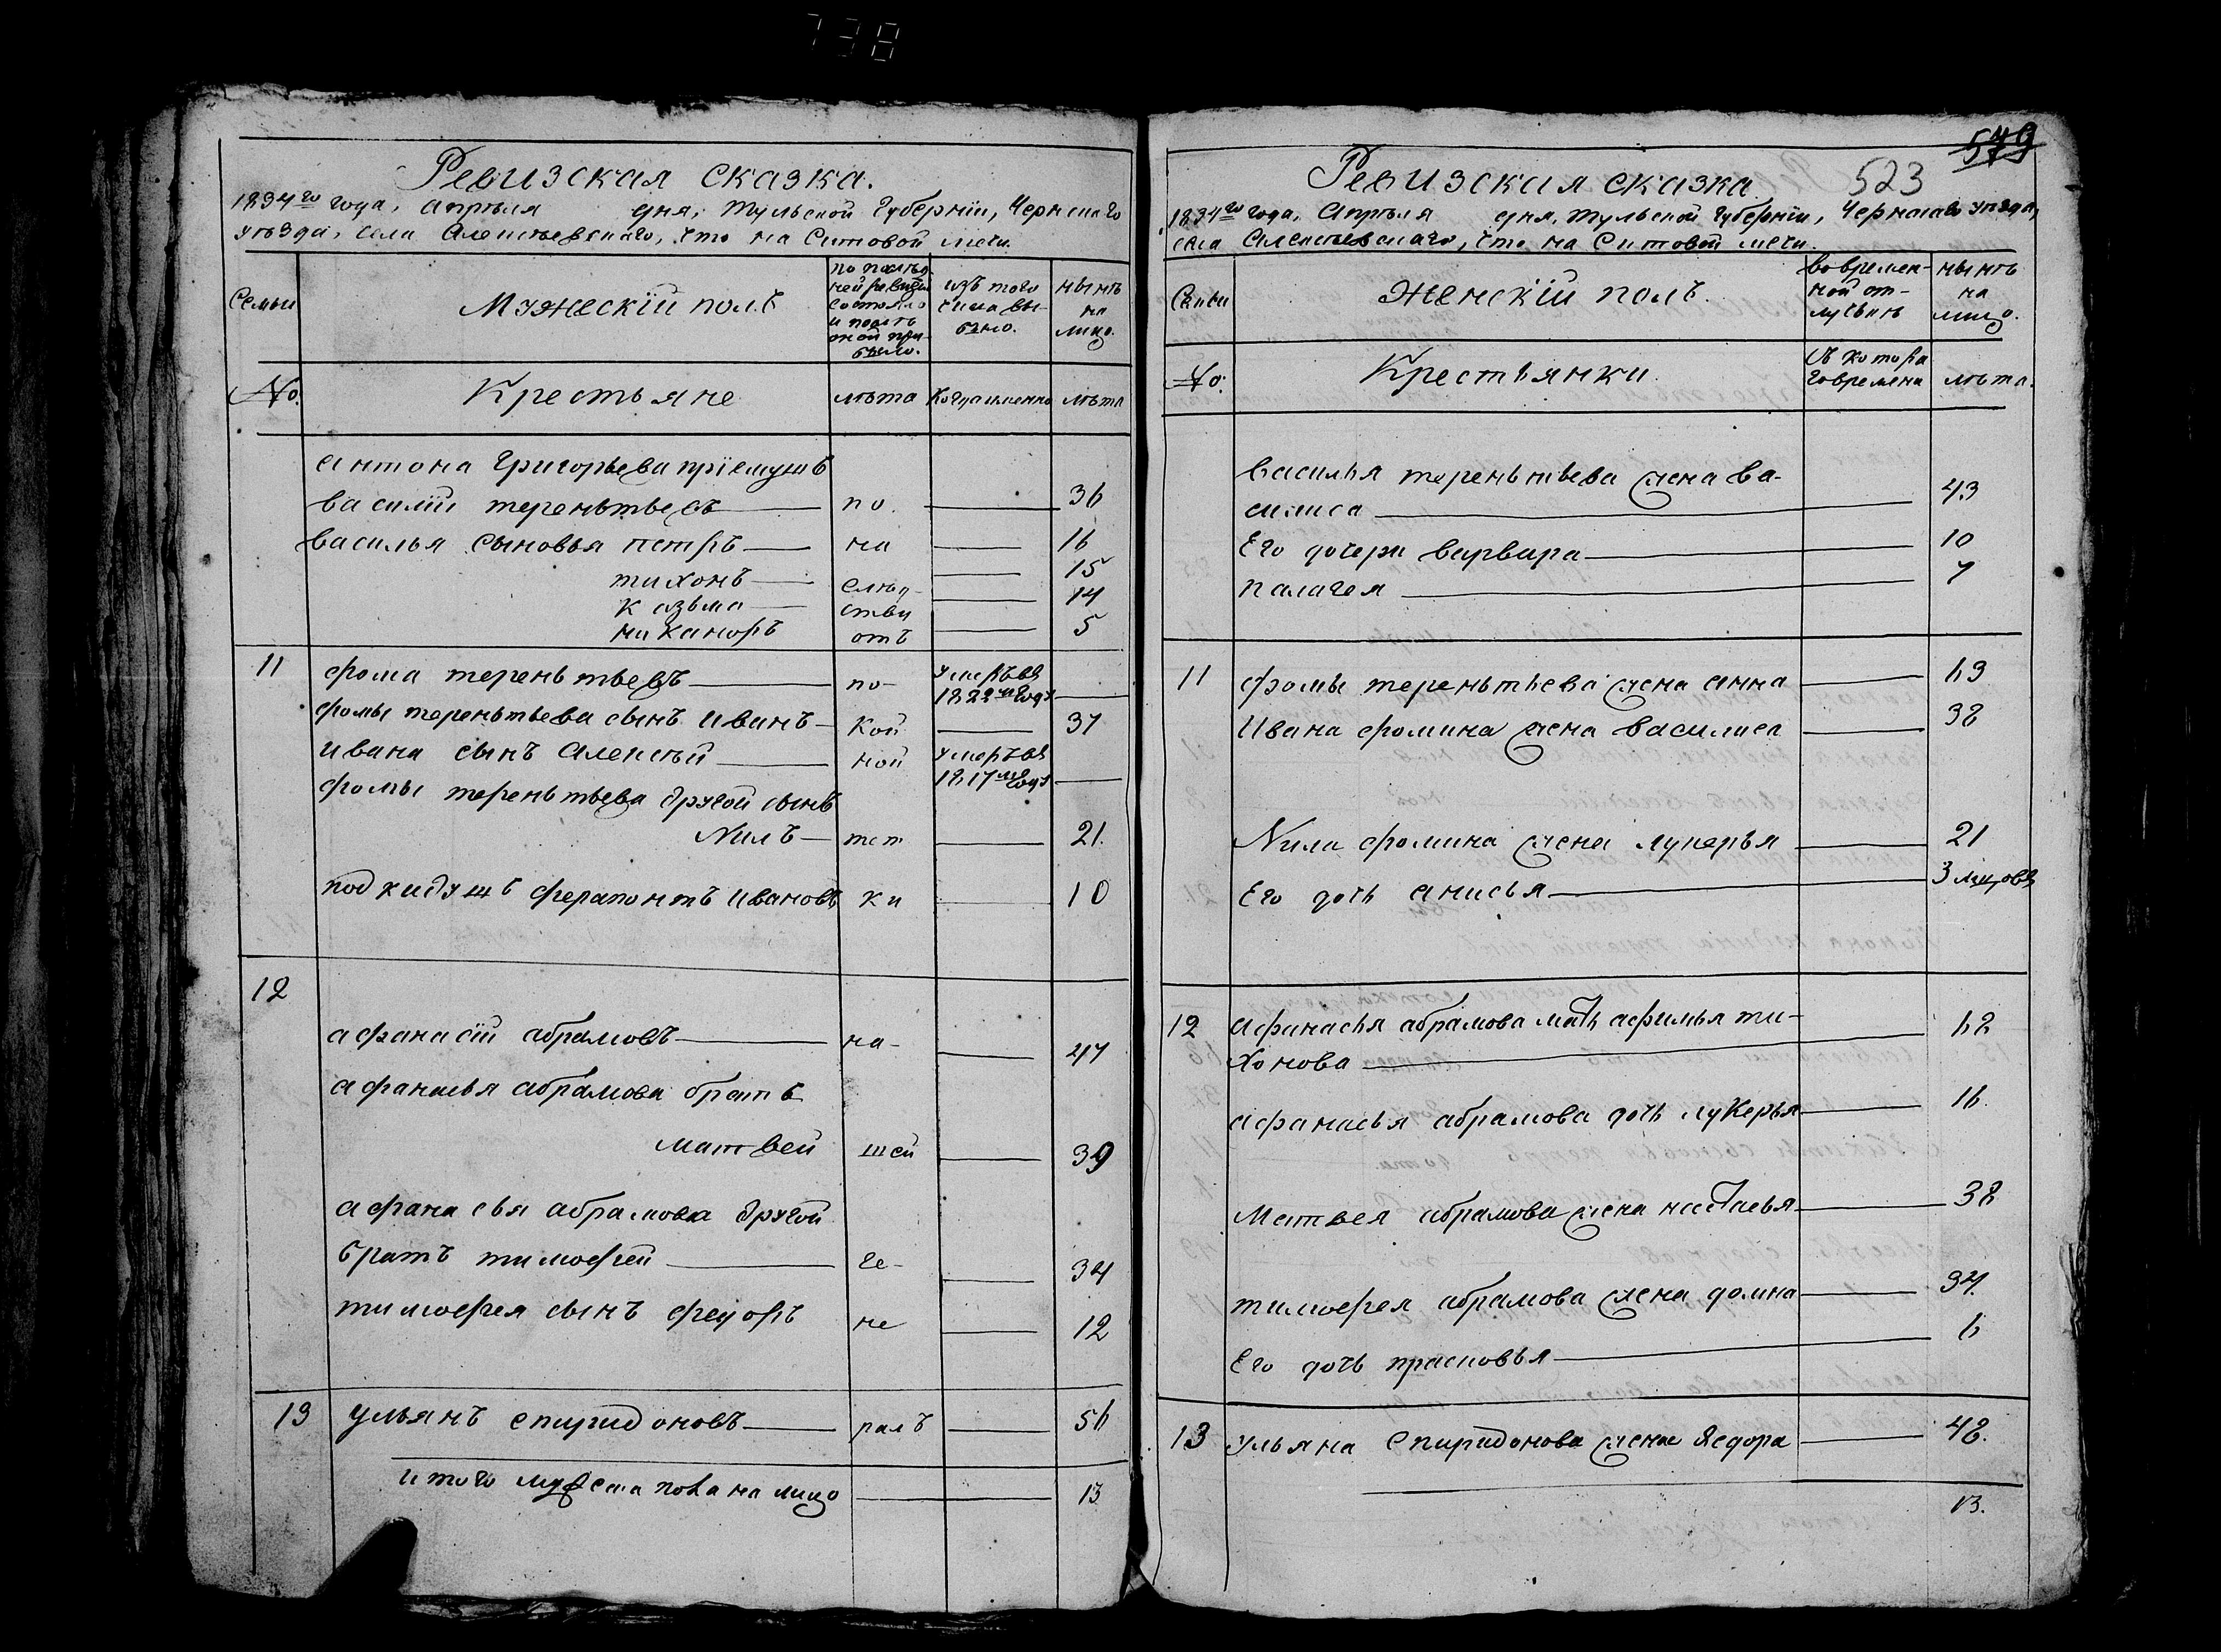 738
Ревизская сказка.
1834го года, апреля дня, Тульской Губернïи, Чернскаго
уѣзда, села Алексѣевскаго, что на Ситовой мечи
Семьи
Мужескïй полъ
по послѣд-
ней ревизïи
состояло
и послѣ
оной при-
было.
изъ того
числа вы-
было.
нынѣ
на
лицо.
No.
Крестьяне
лѣта
Когда именно
лѣта
антона Григорьева прïемушъ
василïй тереньтьевъ по. 36
василья сыновья петръ на 16
тихонъ 15
слѣд-
казьма 14
стви
никаноръ 5
отъ
11 фома тереньтьевъ по- умеръ въ
1822мъ году
фомы тереньтьева сынъ иванъ кой 37
ивана сынъ алексѣй ной умеръ въ
1817мъ году
фомы тереньтьева другой сынъ
Nилъ тет 21.
подкидушъ ферапонтъ ивановъ ки 10
12
афанасïй абрамовъ на- 47
афанасья абрамова братъ
матвей шей 39
афанасья абрамова другой
братъ тимофей че- 34
тимофея сынъ федоръ не 12
13 ульянъ спиридоновъ ралъ 56
итого мужеска пола на лицо 13
579
523
Ревизская сказка
1834го года, апреля дня, тульской губернïи, Чернскаго уѣзда,
села Алексѣевскаго, что на Ситовой мечи.
Семьи
Женскïй полъ.
во времен-
ной от-
лучкѣ
нынѣ
на
лицо.
No:
Крестьянки.
Съ котора
го времена
лѣта.
василья тереньтьева жена ва-
силиса 43
Его дочери варвара 10
палагея 7
11 фомы тереньтьева жена анна 63
Ивана фомина жена василиса 38
Nила фомина жена лукерья 21
Его дочь анисья 3 мцовъ
12 афанасья абрамова мать афимья ти-
хонова 62
афанасья абрамова дочь лукерья 16.
Матвея абрамова жена настасья 38
тимофея абрамова жена домна 34.
Его дочь прасковья 6
13 ульяна спиридонова жена Ѳедора 48.
13.